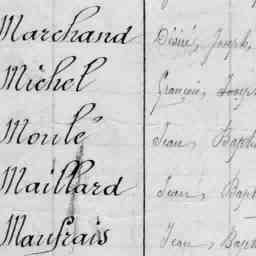 Marchand Désiré, Joseph,
Michel François, Joseph
Moulé Jean, Baptis
Maillard Jean, Bapt
Maufrais Jean, Bapt